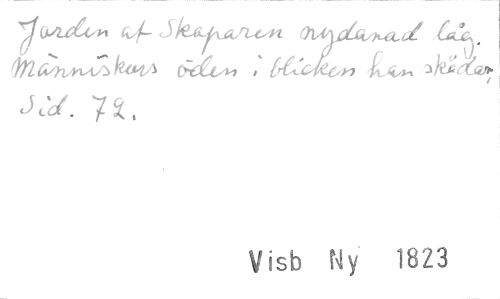 Jorden af Skaparen nydanad låg.
Människors öden i blicken han skådar,
Sid. 72.
Visb Ny 1823